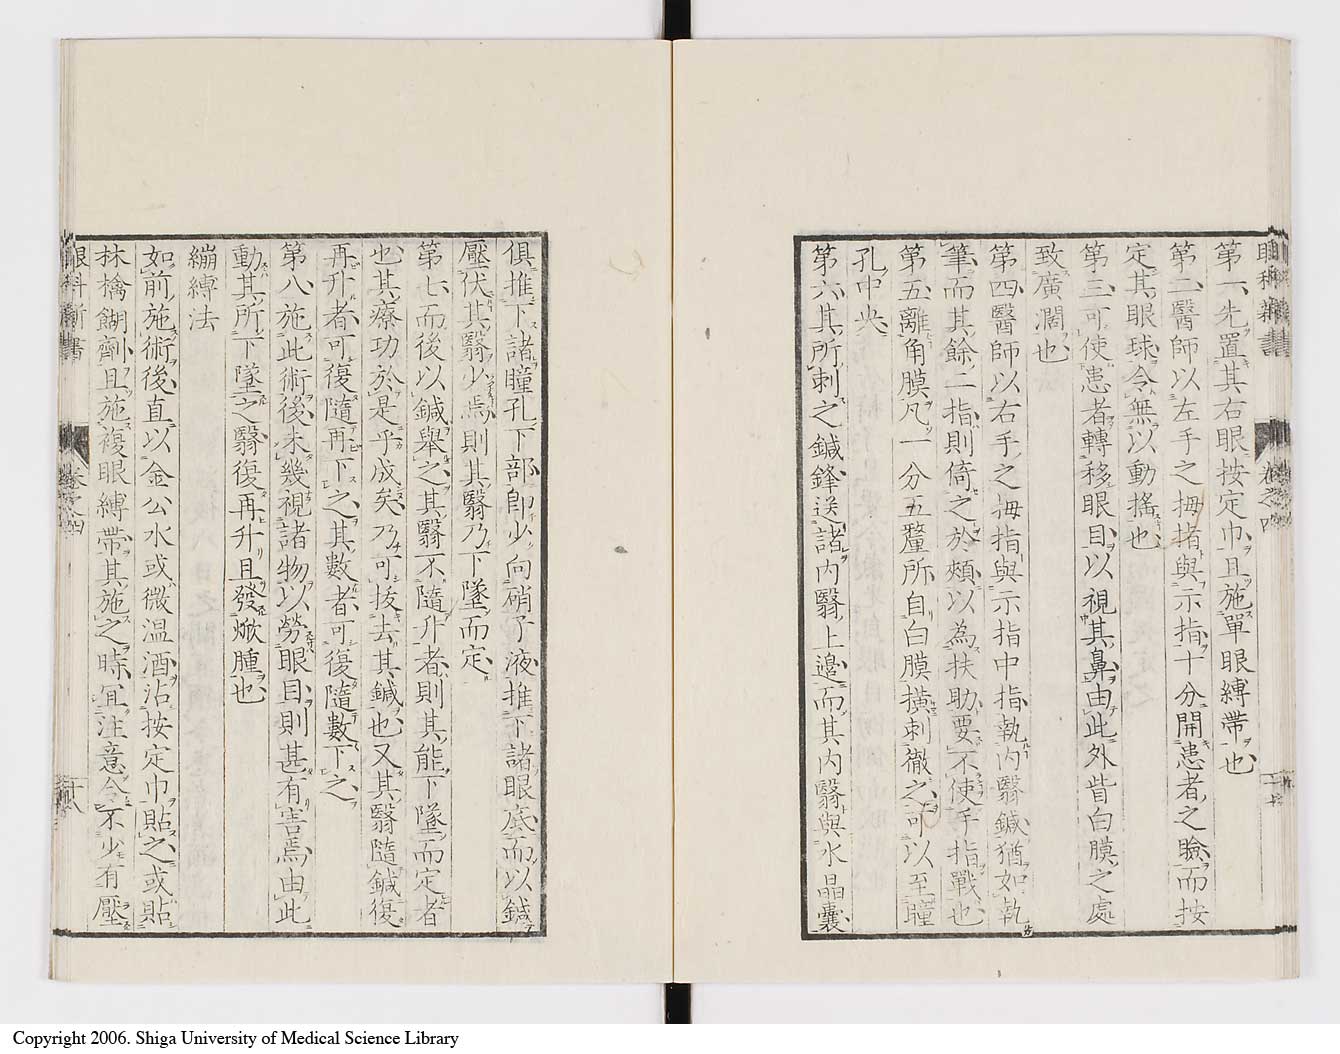 第一先置其右眼按定巾且施單眼縛帶也
第二醫師以左手之拇指與示指十分開患者之瞼而按
定其眼球令無以動搖也
第三可使患者轉移眼目以視其鼻由此外眥白膜之處
致廣濶也
第四醫師以右手之拇指與示指中指執內翳鍼猶如執
筆而其餘二指則倚之於頰以為扶助要不使手指戰也
第五離角膜凡一分五釐所自白膜橫刺徹之可以至瞳
孔中央
第六其所刺之鍼鋒送諸內翳上邊而其內翳與水晶囊
俱推下諸瞳孔下部卽少向硝子液推下諸眼底而以鍼
壓伏其翳少焉則其翳乃下墜而定
第七而後以鍼舉之其翳不隨升者則其能下墜而定者
也其療功於是乎成矣乃可拔去其鍼也又其翳隨鍼復
再升者可復隨再下之其數者可復隨數下之
第八施此術後未幾視諸物以勞眼目則甚有害焉由此
動其所下墜之翳復再升且發焮腫也
繃縛法
如前施術後直以金公水或微溫酒沾按定巾貼之或貼
林檎餬劑且施複眼縛帶其施之時宜注意令不少有壓
眼科新書
卷之四
十八
Copyright 2006. Shiga University of Medical Science Library